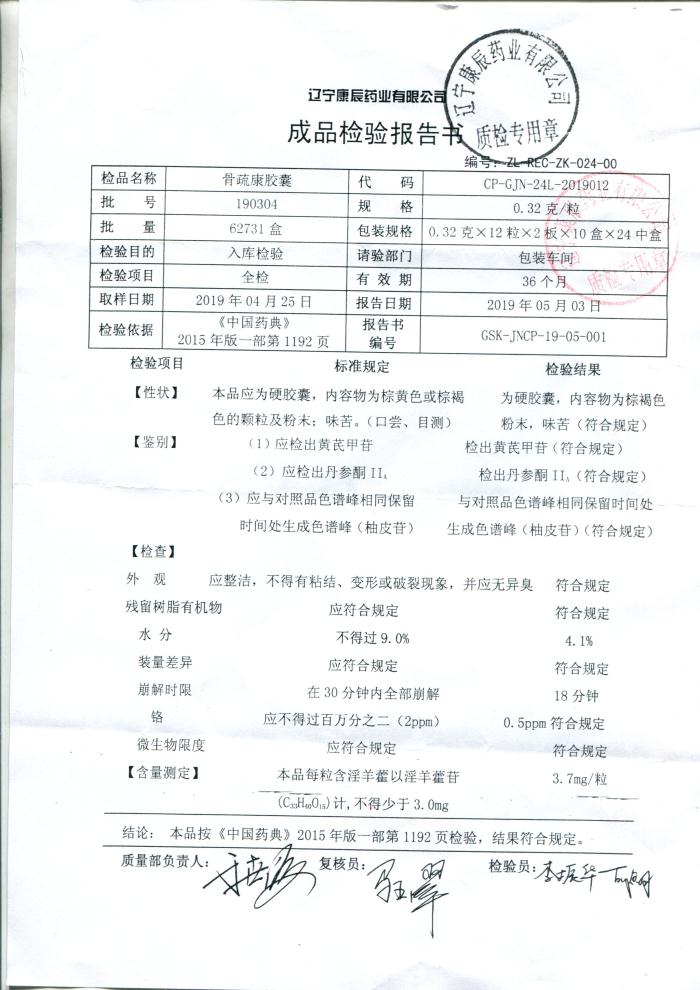 辽宁康辰药业有限公司
质检专用章
辽宁康辰药业有限公司
成品检验报告书
编号：ZL-REC-ZK-024-00
检品名称 骨疏康胶囊 代 码 CP-GJN-24L-2019012
批 号 190304 规 格 0.32 克/粒
批 量 62731 盒 包装规格 0.32 克×12 粒×2 板×10 盒×24 中盒
检验目的 入库检验 请验部门 包装车间
检验项目 全检 有 效 期 36 个月
质检专用章
取样日期 2019 年 04 月 25 日 报告日期 2019 年 05 月 03 日
检验依据 《中国药典》 报告书
2015 年版一部第 1192 页 编号 GSK-JNCP-19-05-001
检验项目 标准规定 检验结果
【性状】 本品应为硬胶囊，内容物为棕黄色或棕褐 为硬胶囊，内容物为棕褐色
色的颗粒及粉末；味苦。（口尝、目测） 粉末，味苦（符合规定）
【鉴别】 （1）应检出黄芪甲苷 检出黄芪甲苷（符合规定）
（2）应检出丹参酮 IIA 检出丹参酮 IIA（符合规定）
（3）应与对照品色谱峰相同保留 与对照品色谱峰相同保留时间处
时间处生成色谱峰（柚皮苷） 生成色谱峰（柚皮苷）（符合规定）
【检查】
外 观 应整洁，不得有粘结、变形或破裂现象，并应无异臭 符合规定
残留树脂有机物 应符合规定 符合规定
水 分 不得过 9.0% 4.1%
装量差异 应符合规定 符合规定
崩解时限 在 30 分钟内全部崩解 18 分钟
铬 应不得过百万分之二（2ppm） 0.5ppm 符合规定
微生物限度 应符合规定 符合规定
【含量测定】 本品每粒含淫羊藿以淫羊藿苷 3.7mg/粒
(C33H40O15)计,不得少于 3.0mg
结论： 本品按《中国药典》2015 年版一部第 1192 页检验，结果符合规定。
质量部负责人： 复核员： 检验员：李振华